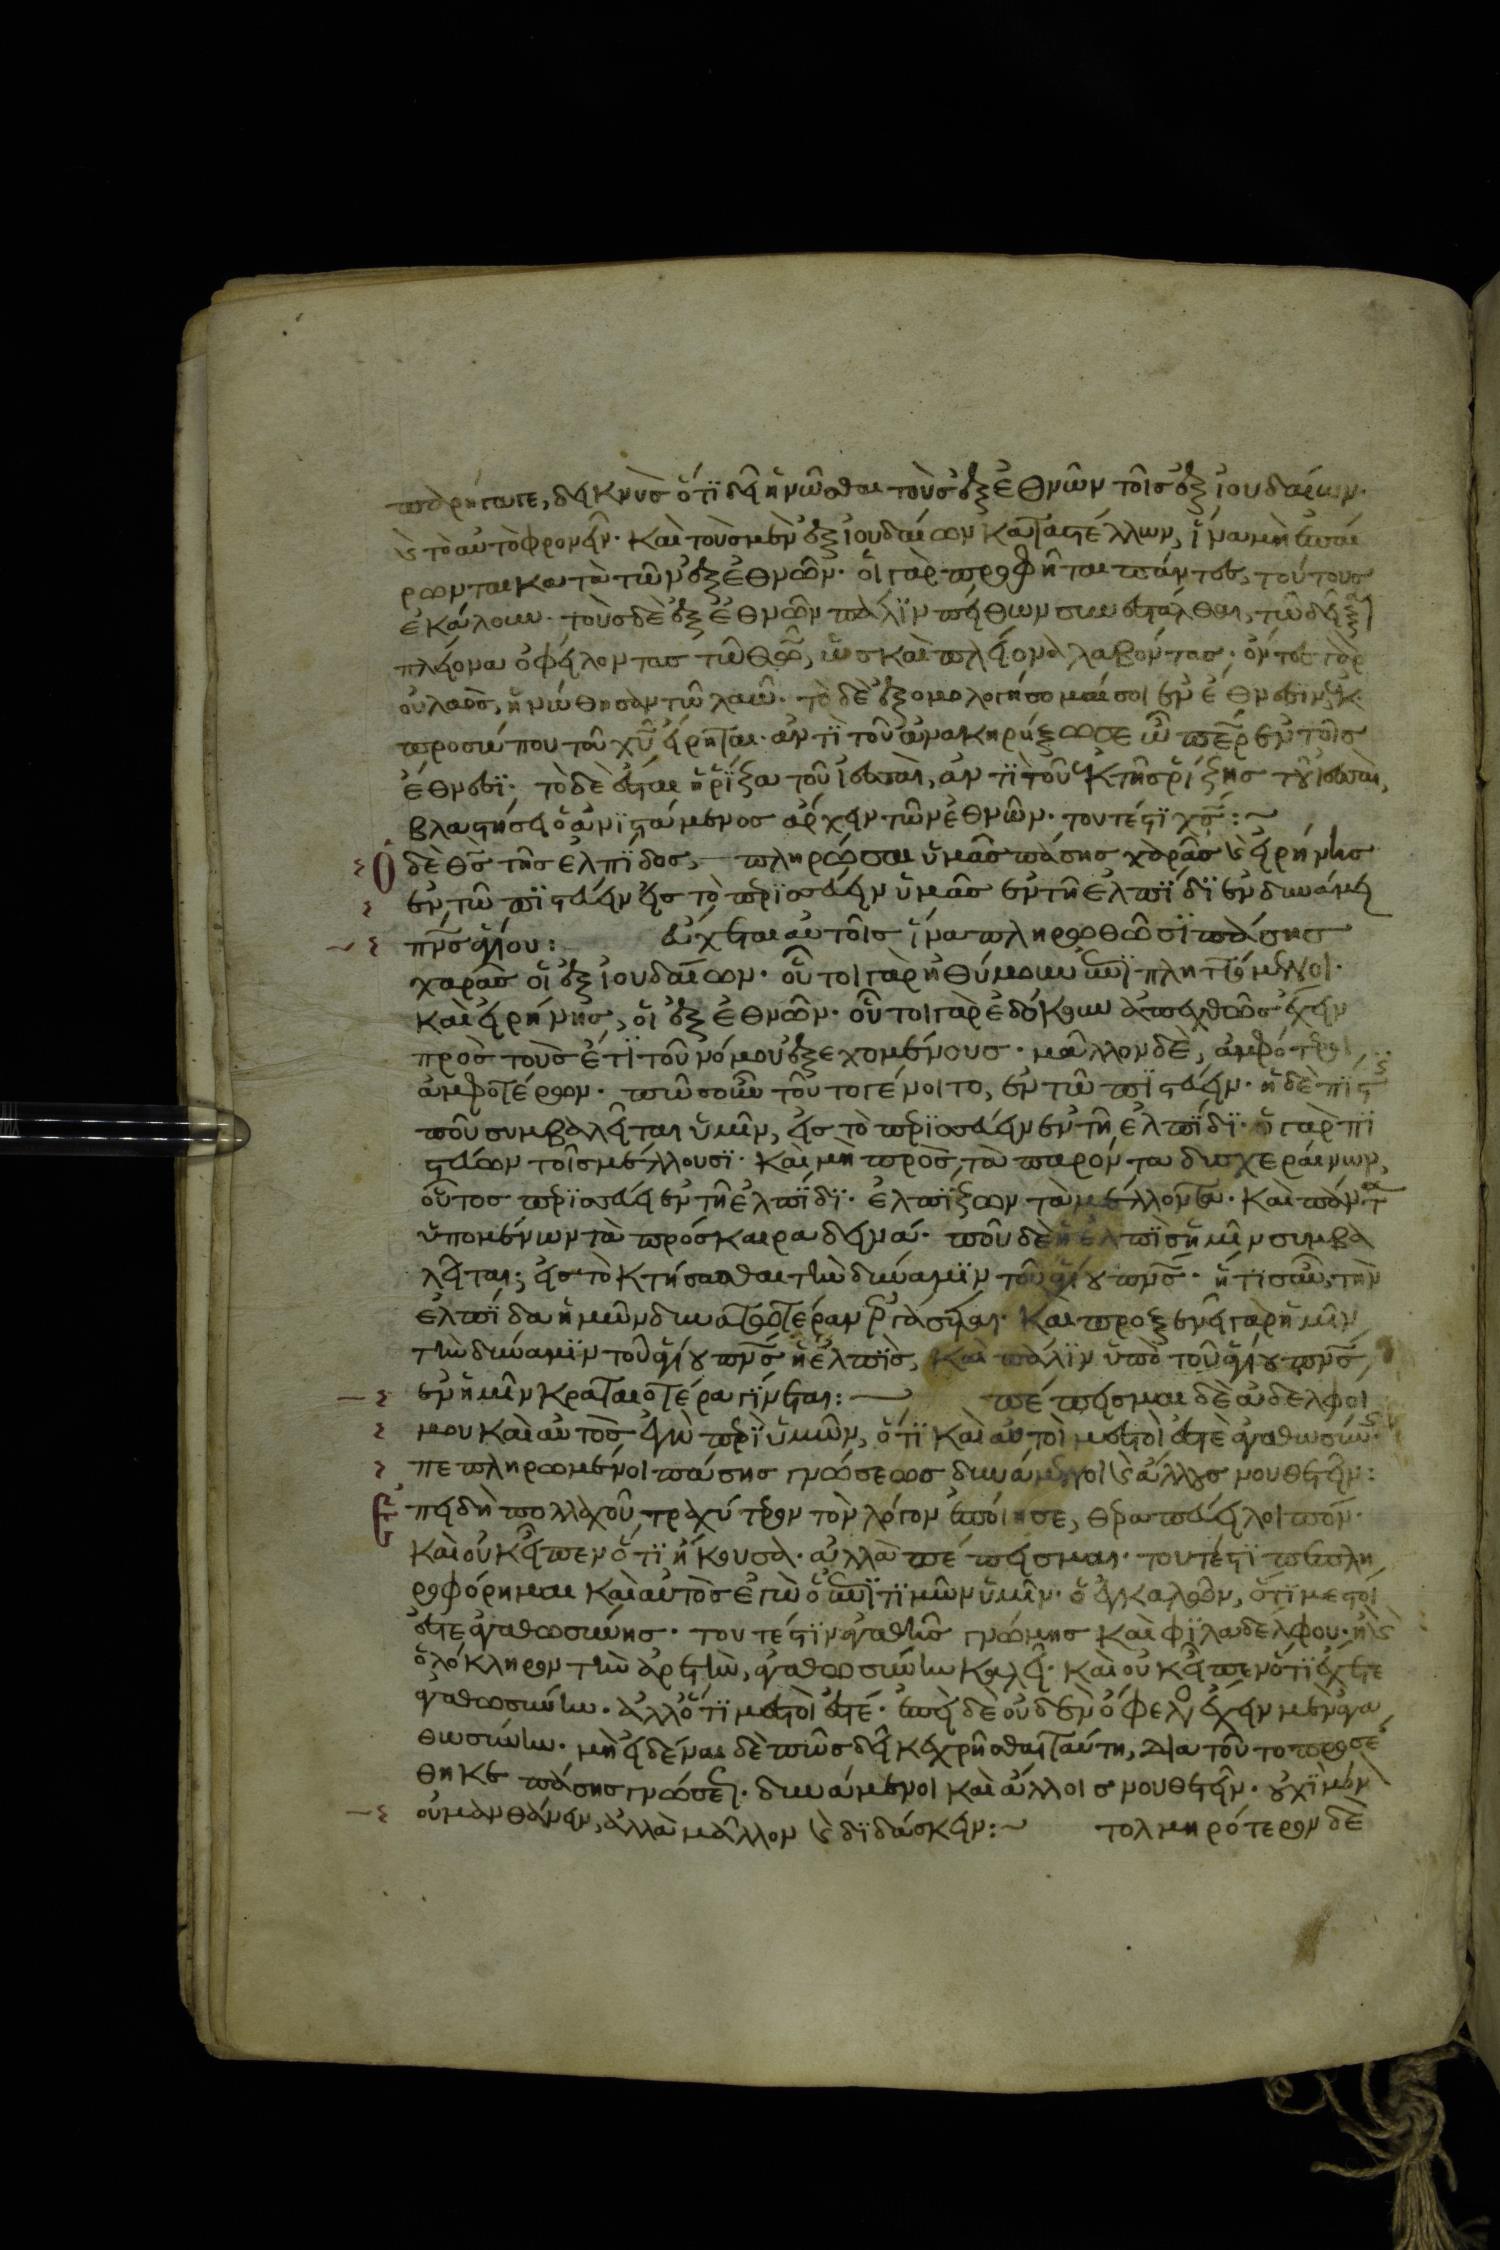 δείκνυσ ὅτι δεῖ ἡνῶσθαι τοὺσ ἐξ ἐθνῶν τοῖσ ἐξ ἰουδαίων·
τὸ αὐτὸ φρονεῖν· καὶ τοὺσ μὲν ἐξ ἰουδαίων καταστέλλων, ἵνα μὴ ἐπαί
ρωνται κατὰ τῶν ἐξ ἐθνῶν· οἱ γὰρ προφῆται πάντεσ, τούτουσ
ἐκάλουν· τοὺσ δὲ ἐξ ἐθνῶν πάλιν πείθων συνεστάλθαι, τῶ δεῖξαι
πλείονα ὀφείλοντασ τῶ θεῶ, ὡσ καὶ πλείονα λαβόντασ· ὄντεσ γὰρ
οὐ λαὸσ, ἡνώθησαν τῶ λαῶ· τὸ δὲ ἐξομολογήσομαί σοι ἐν ἔθνεσιν, ἐκ
προσώπου τοῦ χυ εἴρηται· ἀντὶ τοῦ ἀνακηρύξω σε ὦ περ ἐν τοῖσ
ἔθνεσι· τὸ δὲ ἔσται ἡ ῥίζα τοῦ ἰεσσαὶ, ἀντὶ τοῦ ἐκ τῆσ ρίζησ τοῦ ἰεσσαὶ,
βλαστήσει ὁ ἀνιστάμενοσ ἄρχειν τῶν ἐθνῶν· τουτέστι χσ:~
Ὁ δὲ θσ τῆσ ἐλπίδοσ, πληρώσαι ὑμᾶσ πάσησ χαρᾶσ καὶ εἰρήνησ
ἐν τῶ πιστεύειν εἰσ τὸ περισσεύειν ὑμᾶσ ἐν τῆ ἐλπίδι ἐν δυνάμει
πνσ ἁγίου: εὔχεται αὐτοῖσ ἵνα πληρωθῶσι πάσησ
χαρᾶσ οἱ ἐξ ἰουδαίων· οὗτοι γὰρ ἠθύμουν ἐπιπληττόμενοι·
καὶ εἰρήνησ, οἱ ἐξ ἐθνῶν· οὗτοι γὰρ ἐδόκουν ἀπεχθῶσ ἔχειν
πρὸσ τοὺσ ἔτι τοῦ νόμου ἐξεχομένουσ· μᾶλλον δὲ, ἀμφότεροι
ἀμφοτέρων· πῶσ οὖν τοῦτο γένοιτο, ἐν τῶ πιστεύειν· ἡ δὲ πίστισ
ποῦ συμβαλεῖται ὑμῖν, εἰσ τὸ περισσεύειν ἐν τῆ ἐλπίδι· ὁ γὰρ πι
στεύων τοῖσ μέλλουσι· καὶ μὴ πρὸσ τὰ παρόντα δυσχεραίνων,
οὗτοσ περισσεύει ἐν τῆ ἐλπίδι· ἐλπίζων τὰ μέλλοντα· καὶ πάντα
ὑπομένων τὰ πρόσκαιρα δεινά· ποῦ δὲ ἡ ἐλπὶσ ἡμῖν συμβα
λεῖται; εἰσ τὸ κτήσασθαι τὴν δύναμιν τοῦ ἁγίου πνσ· ἥτισ οὖν τὴν
ἐλπίδα ἡμῶν δυνατωτέραν ἐργάσηται· καὶ προξενεῖ γὰρ ἡμῖν
τὴν δύναμιν τοῦ ἁγίου πνσ ἡ ἐλπὶσ, καὶ πάλιν ὑπὸ τοῦ ἁγίου πνσ
ἐν ἡμῖν κραταιοτέρα γίνεται: πέπεισμαι δὲ ἀδελφοι
μου καὶ αὐτὸσ ἐγὼ περὶ ὑμῶν, ὅτι καὶ αὐτοὶ μεστοὶ ἐστὲ ἀγαθωσύνησ
πεπληρωμένοι πάσησ γνώσεωσ δυνάμενοι καὶ ἄλλουσ νουθετεῖν:
Ἐπειδὴ πολλαχοῦ τραχύτερον τὸν λόγον ἐποίησε, θεραπεύει λοιπόν·
καὶ οὐκ εἶπεν ὅτι ἤκουσα· ἀλλὰ πέπεισμαι· τουτέστι πεπλη
ροφόρημαι καὶ αὐτὸσ ἐγὼ ὁ ἐπιτιμῶν ὑμῖν· ὁ ἐγκαλῶν, ὅτι μεστοί
ἐστε ἀγαθωσύνησ· τουτέστιν ἀγαθῆσ γνώμησ καὶ φιλαδέλφου·
ὁλόκληρον τὴν ἀρετὴν, ἀγαθωσύνην καλεῖ· καὶ οὐκ εἶπεν ὅτι ἔχετε
ἀγαθωσύνην· ἀλλ' ὅτι μεστοὶ ἐστέ· ἐπεὶ δὲ οὐδὲν ὄφελοσ ἔχειν μὲν ἀγα
θωσύνην· μὴ εἰδέναι δὲ πῶσ δεῖ κεχρῆσθαι ταύτη, διὰ τοῦτο προσέ
θηκε πάσησ γνώσεωσ· δυνάμενοι καὶ ἄλλουσ νουθετεῖν· οὐχὶ μόνον
οὐ μανθάνειν, ἀλλὰ μᾶλλον καὶ διδάσκειν:~ τολμηρότερον δὲ